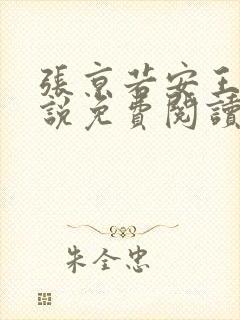 張京若安王
說免費閱讀
朱全忠